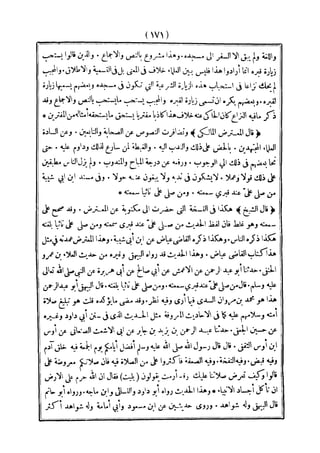 ﴿ ١٧١ ﴾
والأئمة ولم يبق الا السفر الى مسجده. وهذا مشروع بالنص والاجماع. والذين قالوا يستحب
زيارة قبره انما أرادوا هذا فليس بين العلماء خلاف فى المعنى بل فى التسمية والاطلاق. والمجيب
لم يحك نزاعا فى استحباب هذه الزيارة الشرعية التى تكون فى مسجده وبعضهم يسميها زيارة
لقبره. وبعضهم يكره ان تسمى زيارة لقبره. والمجيب يستحب ما يستحب بالنص والاجماع وقد
ذكر ما فيه النزاع
﴿ قال المعترض المالكى ﴾ وتضافرت النصوص عن الصحابة والتابعين. وعن السادة
العلماء المجتهدين. بالحض على ذلك والندب اليه. والغبطة لمن سارع لذلك وداوم عليه. حتى
نحا بعضهم فى ذلك الى الوجوب. ورفعه عن درجة المباح والمندوب. ولم يزل الناس مطبقين
على ذلك قولا وعملا. لا يشكون فى ندبه ولا يبغون عنه حولا. وفى مسند ابن أبى شيبة
من صلى على عند قبرى سمعته. ومن صلى على نائيا سمعته *
﴿ قال الشيخ ﴾ هكذا فى النسخة التى حضرت الى مكتوبة عن المعترض. وقد صحح على
سمعته وهو غلط فان لفظ الحديث من صلى على عند قبرى سمعته ومن صلى على نائيا بلغته
هكذا ذكره الناس. وهكذا ذكره القاضى عياض عن ابن أبى شيبة. وهذا المعترض عمدته فى مثل
هذا كتاب القاضى عياض. وهذا الحديث قد رواه البيهقى وغيره من حديث العلاء بن عمرو
الحنفى. حدثنا أبو عبد الرحمن عن الاعمش عن أبى صالح عن أبى هريرة عن النبى صلى الله تعالى
عليه وسلم. قال من صلى على عند قبرى سمعته. ومن صلى على نائيا بلغته. قال البيهقى أبو عبد الرحمن
هذا هو محمد بن مروان السدى فيما أرى وفيه نظر. وقد مضى ما يؤكده قلت هو تبليغ صلاة
أمته وسلامهم عليه كما فى الاحاديث المعروفة مثل الحديث الذى فى سنن أبى داود وغيره
عن حسين الجعفى. حدثنا عبد الرحمن بن يزيد بن جابر عن ابى الاشعث الصنعانى عن أوس
ابن أوس الثقفى. قال قال رسول الله صلى الله عليه وسلم أفضل أيامكم يوم الجمعة فيه خلق آدم
وفيه قبض. وفيه النفخة. وفيه الصعقة فأكثروا على من الصلاة فيه فان صلاتكم معروضة على
قالوا وكيف تعرض صلاتنا عليك وقد أرمت يقولون (بليت) فقال ان الله حرم على الارض
ان تأكل أجساد الانبياء * وهذا الحديث رواه أبو داود والنسائى وابن ماجه. ورواه أبو حاتم
قال البيهقى وله شواهد. وروى حديثين عن ابن مسعود وأبى أمامة وله شواهد أكثر